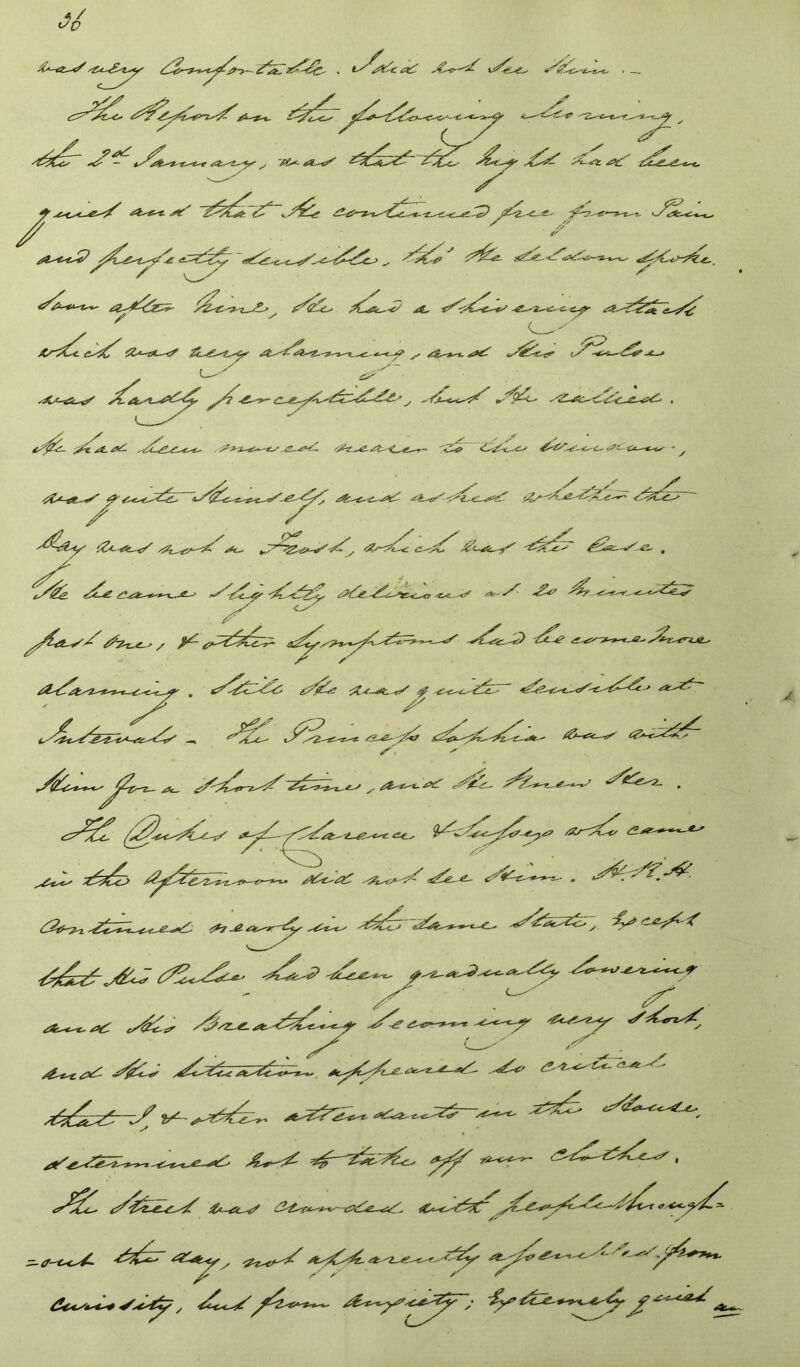 36
was very Comfortable. I did not See Him. –
The Report on the following Morning,
the 2d. January, was that the Night had been
quiet and that He continued free from Pain
and perfectly sensible, tho' He seldom spoke.
Soon after Nine, He had a shivering attack
which was very alarming, and His Pulse
was hardly perceptible, but He rallied.
He had been moved nearer to the Window,
was quite Himself, and asked whether the
Day was not a Frost, which was the Case.
He became slightly delirious at 20 Minutes
past One, & other Symptoms had become More
alarming. Still He was quite sensible at
Intervals – The Princess Sophia was with
Him for a short time, and He Knew Her.
The Dukes of Clarence & Sussex who came
in the Afternoon did not see Him. H.R.H.
Continued nearly in the same State, Except
that His Pulse had been gradually lowering
and His Breathing becoming very short,
and His Situation appeared so critical
that I, & other attendants in the House,
determined not to take off our clothes.
The Street was crowded with people through=
=out the day, not apparently assembled from
Curiosity, but from Anxiety; Extremely quiet